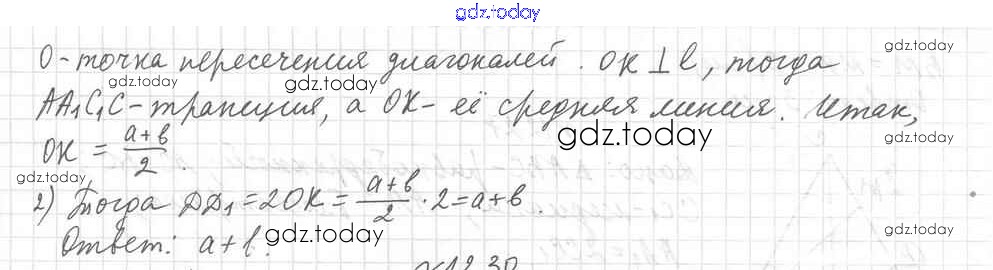 gdz.today
O - точка пересечения диагоналей. OK ⊥ l, тогда gdz.today
gdz.today gdz.today
AA₁C₁C - трапеция, а OK - её средняя линия. Итак,
gdz.today
OK = (a+b)/2.
gdz.today gdz.today
2) Тогда DD₁ = 2OK = (a+b)/2 · 2 = a+b.
gdz.today gdz.today
Ответ: a+b.